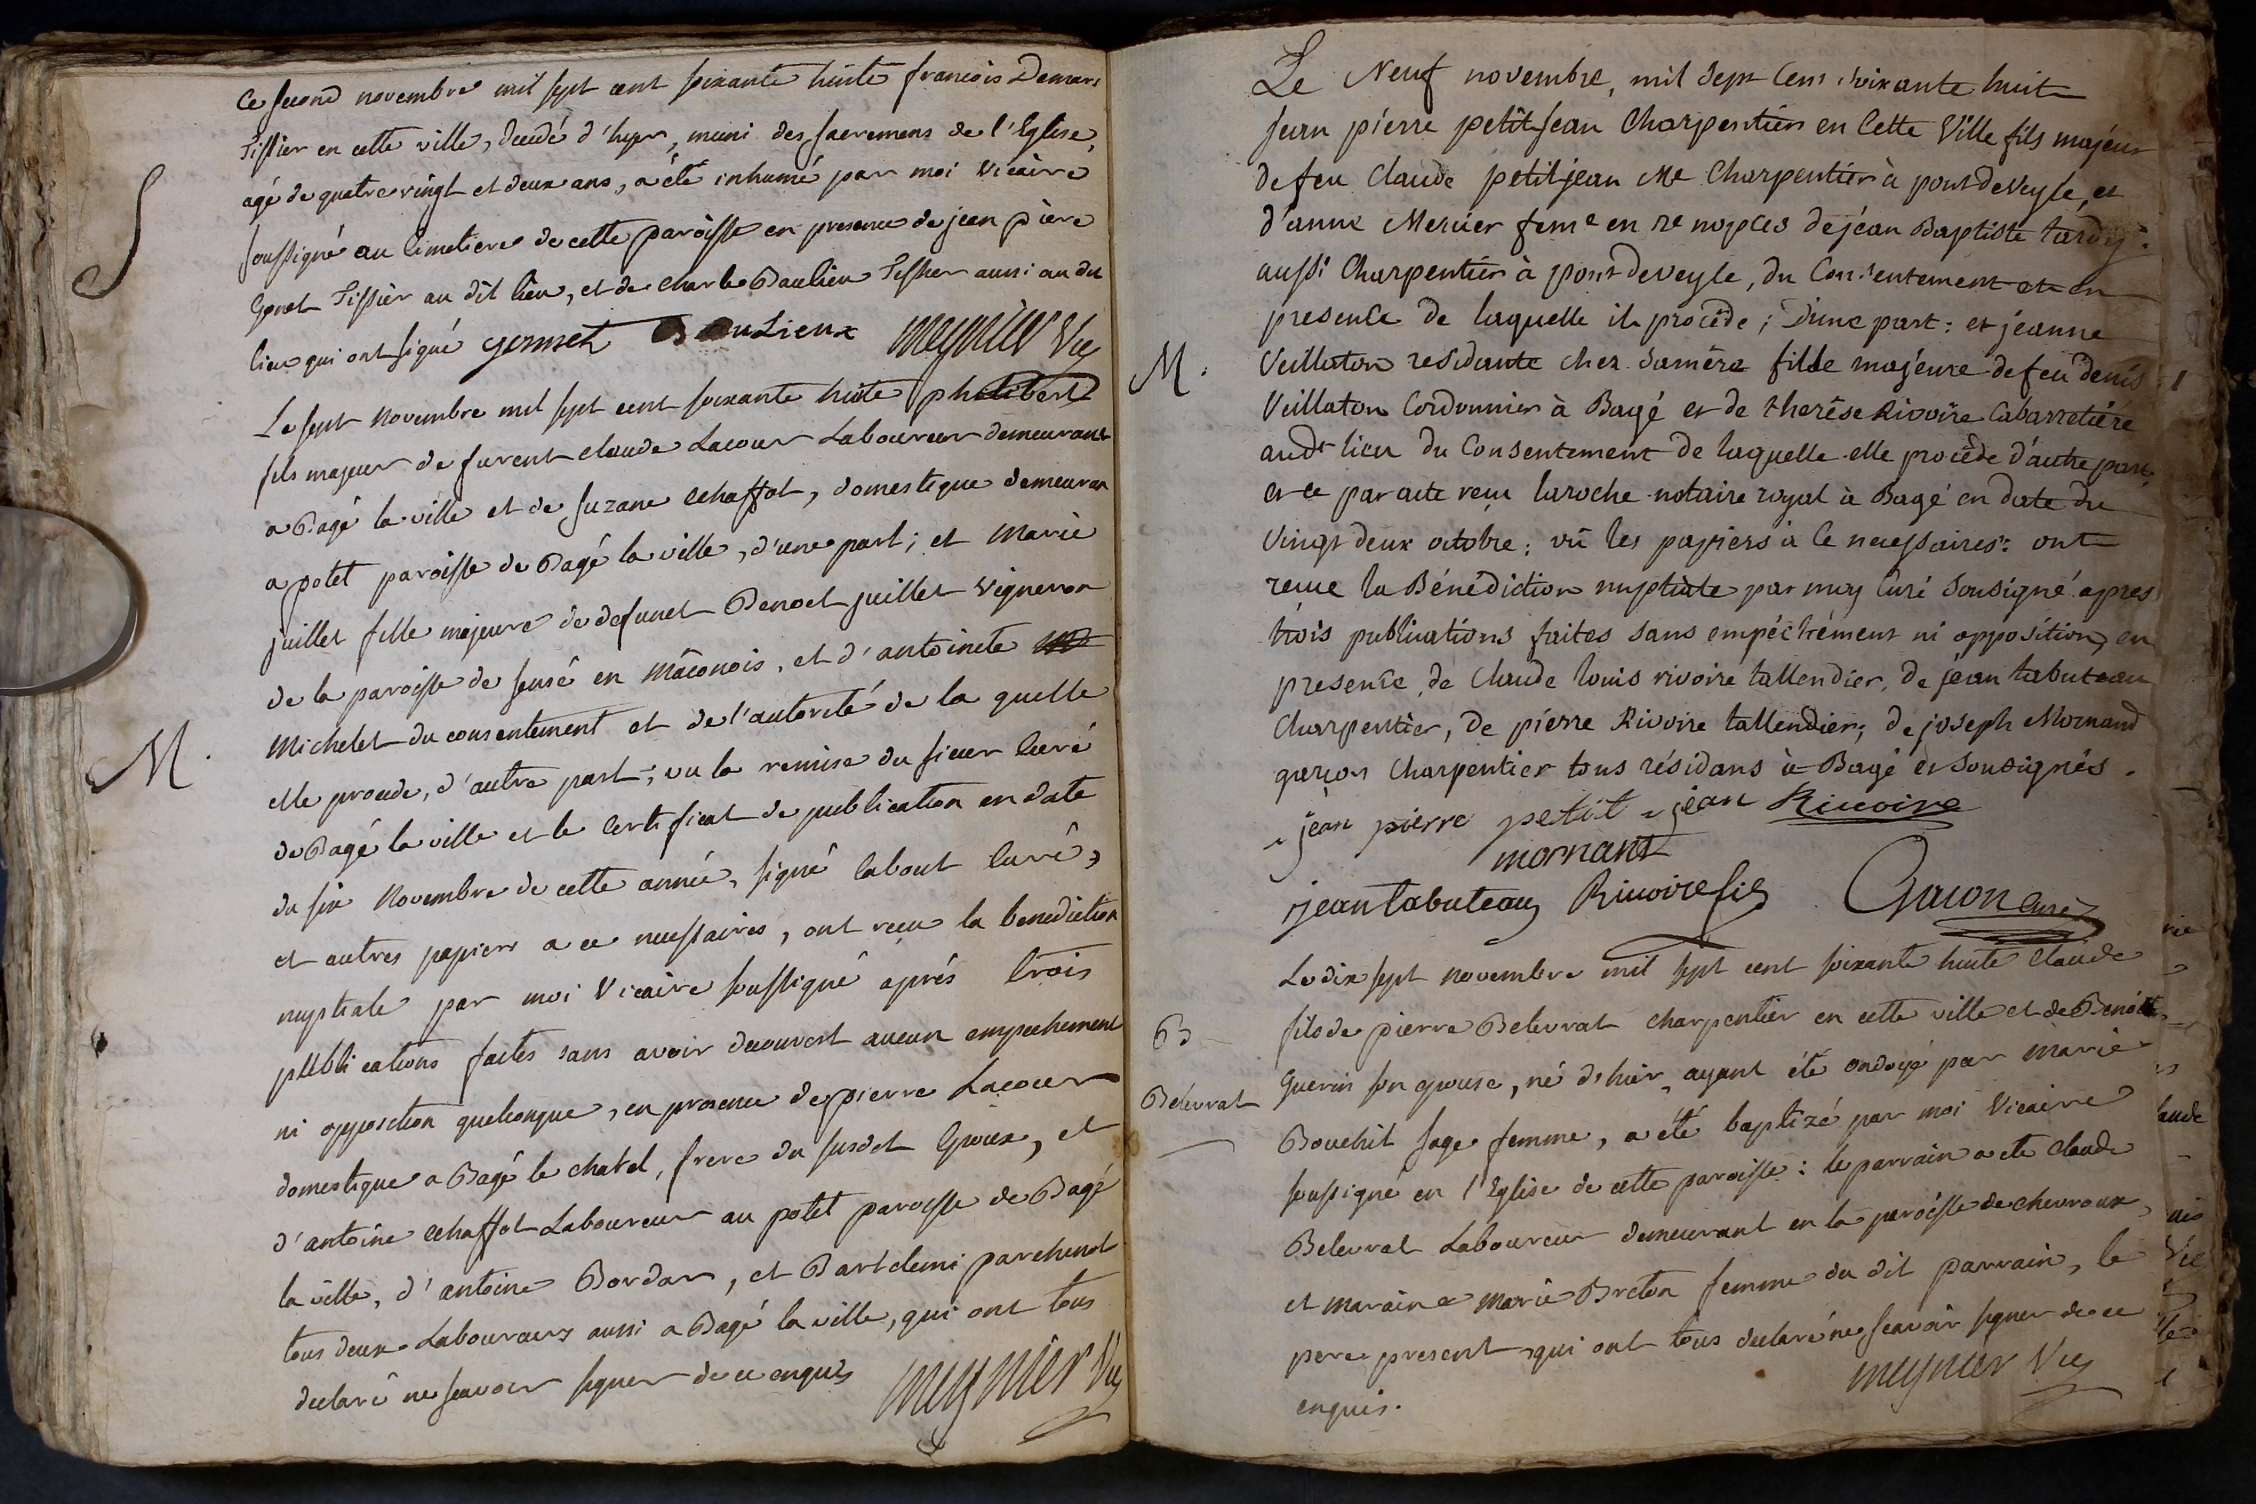 Ce second novembre mil sept cent soixante huite francois Demars
Tissier en cette ville, decedé d'hyer, muni des sacremens de l'Eglise,
agé de quatre vingt et deux ans, a été inhumé par moi Vicaire
S
soussigné au Cimetiere de cette paroisse en presence de jean pière
Gonet Tissier au dit lieu, et de charle Baulieu Tissier aussi au du
lieu qui ont signé gonnet Baulieux meynier Vic
Le sept Novembre mil sept cent soixante huite philibert
fils majeur de furent claude Lacour Laboureur demeurant
a Bagé la ville et de suzane Echaffot, domestique demeuran
a potet paroisse de Bagé la ville, d'une part; et Marie
juillet fille majeure de defunct Benoet juillet Vigneron
de la paroisse de sensé en Mâconois, et d'antoinete
M.
Michelet du consentement et de l'autorité de la quelle
elle procede, d'autre part; vu la remise du sieur Curé
de Bagé la ville et le Certificat de publication en date
du six Novembre de cette année, signé labout Curé,
et autres papiers a ce necessaires, ont recu la benediction
nuptiale par moi Vicaire soussigné après trois
publications faites sans avoir decouvert aucun empechement
ni opposition quelconque, en presence de pierre Lacour
domestique a Bagé le chatel, frere du susdit Epoux, et
d'antoine Echaffot Laboureur au potet paroisse de Bagé
la ville, d'antoine Bordar, et Bartelemi parchenot
tous deux Laboureurs aussi a Bagé la ville, qui ont tous
declaré ne scavoir signer de ce enquis meynier Vic
Le Neuf novembre, mil sept Cent soixante huit
Jean pierre petitJean Charpentier en Cette Ville fils majeur
de feu Claude petitjean Me Charpentier à pontdeveyle, et
d'anne Mercier feme en 2e nopces de jéan Baptiste tardy
aussi Charpentier à pont deveyle, du Consentement et en
presence de laquelle il procède; D'une part: et jeanne
M.
Veillaton residante chez sa mère fille majeure de feu denis
Veillaton Cordonnier à Bagé et de therèse Rivoire Cabarretière
audt lieu du Consentement de laquelle elle procède d'autre part,
et ce par acte reçu laroche notaire royal à Bagé en date du
Vingt deux octobre; vû les papiers à ce necessaires: ont
recue la Bénédiction nuptiale par moy Curé Sousigné apres
trois publications faites sans empéchément ni opposition, en
présence de Claude louis rivoire tallendier, de jean tabuteau
Charpentier, de pierre Rivoire tallendier, de joseph Mornand
garçon Charpentier tous résidans à Bagé et Sousignés.
jean pierre petit jean Rivoire
mornant
jean tabuteau Rivoire fils Gacon Curé
Le dix sept novembre mil sept cent soixante huite Claude
B
fils de pierre Belevrat charpentier en cette ville et de Benoite
Belevrat
Guerin son epouse, né d'hier, ayant été ondoyé par marie
Bouchit sage femme, a été baptizé par moi Vicaire
soussigné en l'Eglise de cette paroisse: le parrain a ete claude
Belevrat Laboureur demeurant en la paroisse de chevroux,
et maraine Marie Breton femme du dit parrain, le
pere present qui ont tous declaré ne scavoir signer de ce
enquis. meynier Vic